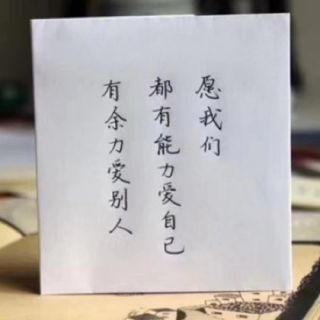 愿我们
都有能力爱自己
有余力愛别人